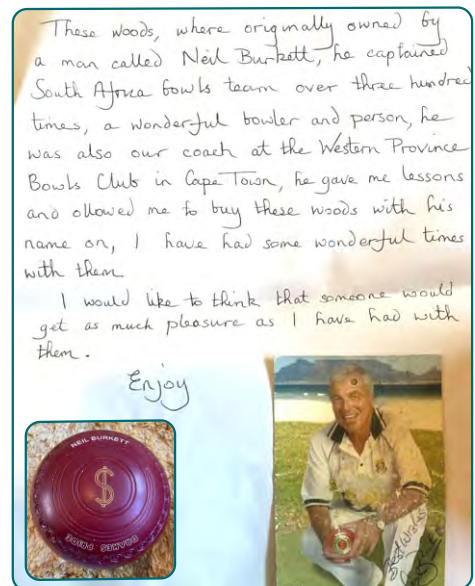 These woods, where originally owned by
a man called Neil Burkett, he captained
South Africa bowls team over three hundred
times, a wonderful bowler and person, he
was also our coach at the Western Province
Bowls Club in Cape Town, he gave me lessons
and ollowed me to buy these woods with his
name on, I have had some wonderful times
with them
I would like to think that someone would
get as much pleasure as I have had with
them.
Enjoy
NEIL BURKETT
DRAKES PRIDE
Best Wishes